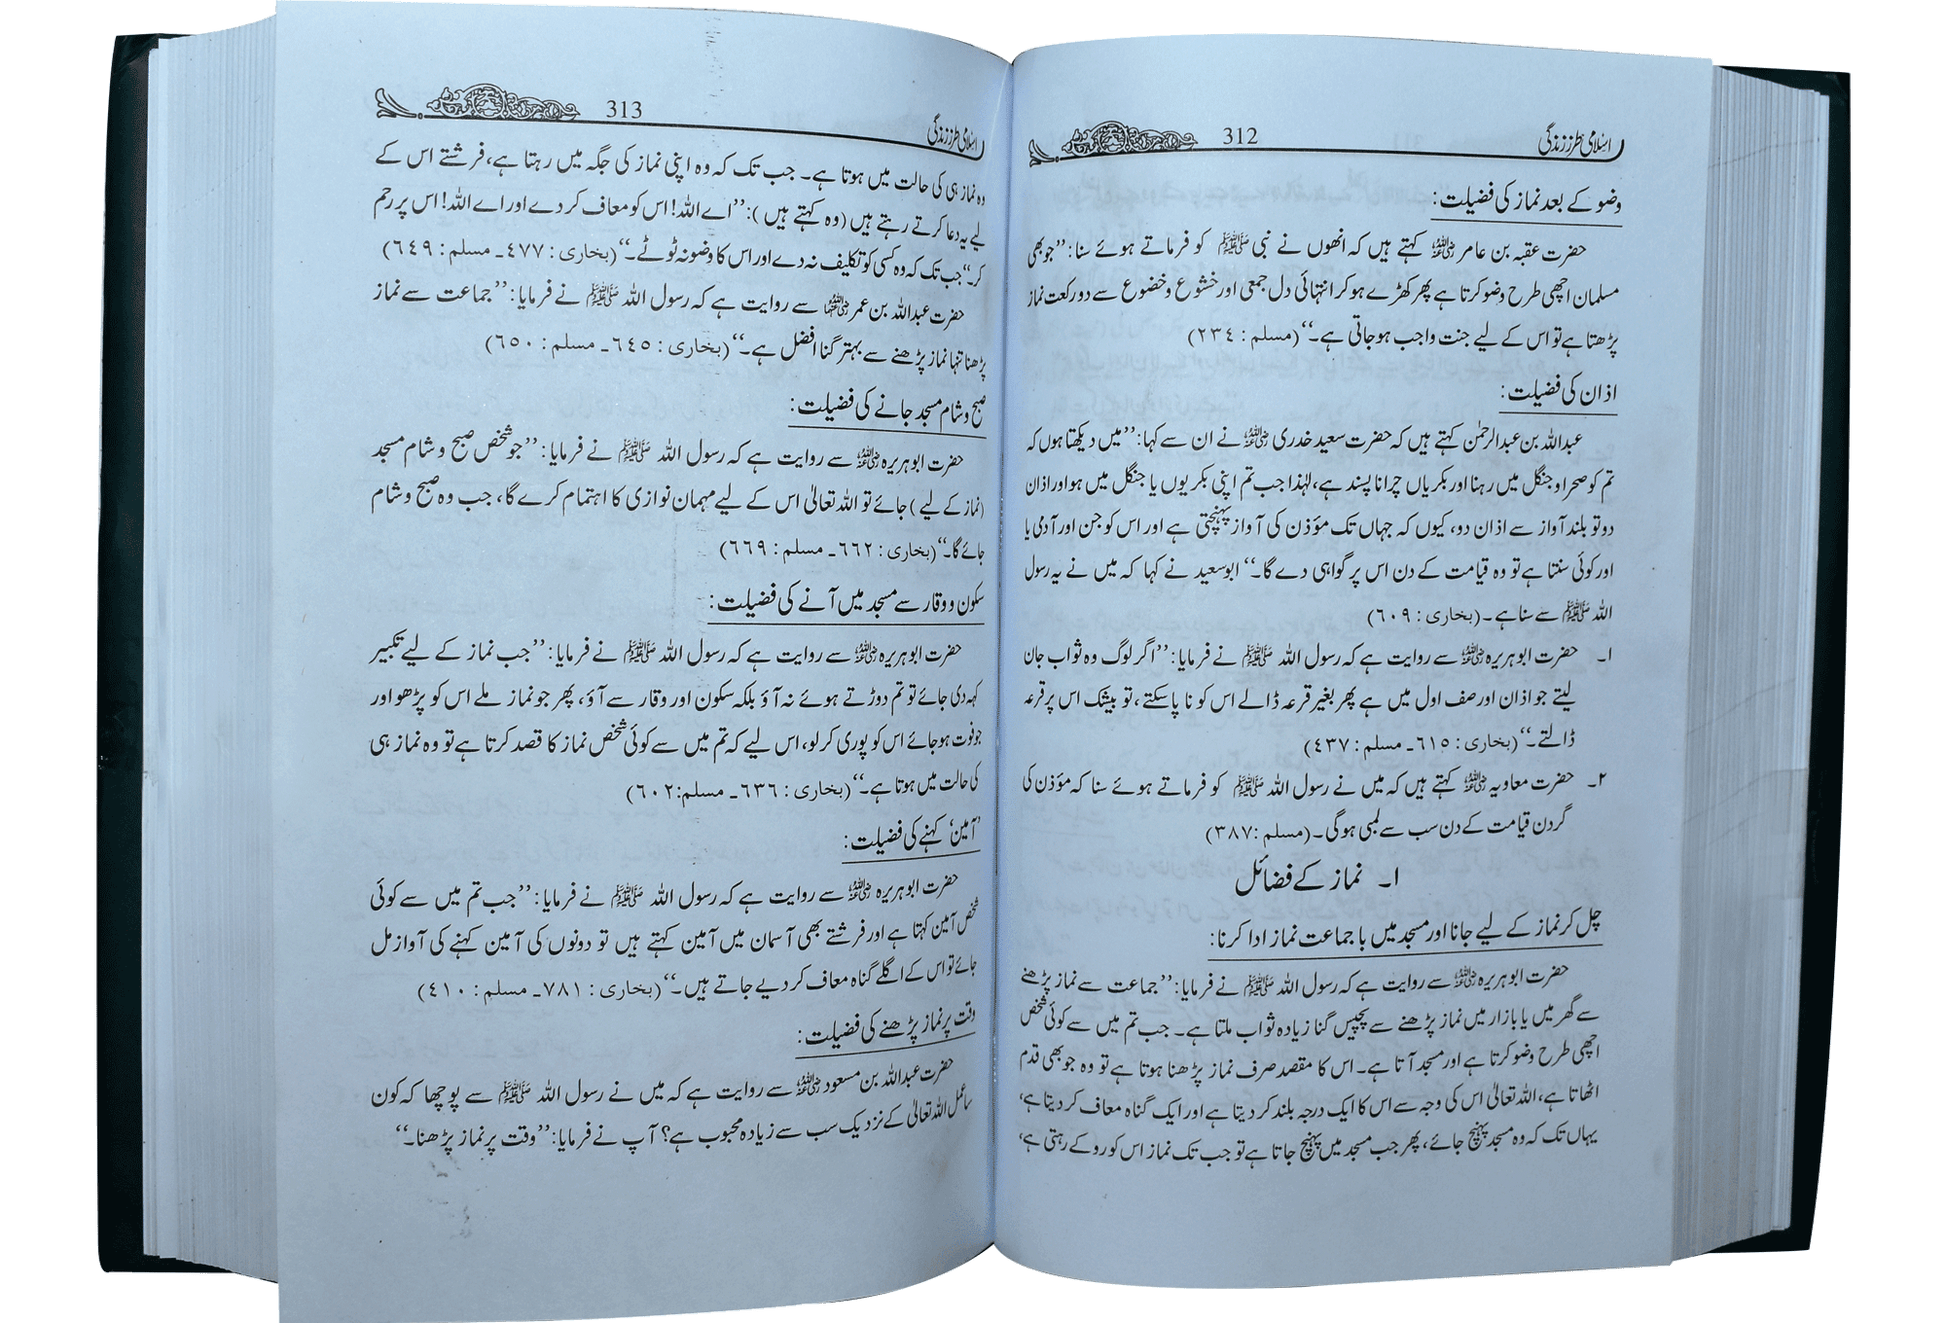 اسلامی طرز زندگی 312
وضو کے بعد نماز کی فضیلت:
حضرت عقبہ بن عامر رضی اللہ عنہ کہتے ہیں کہ انھوں نے نبی ﷺ کو فرماتے ہوئے سنا: ’’جو بھی
مسلمان اچھی طرح وضو کرتا ہے پھر کھڑے ہو کر انتہائی دل جمعی اور خشوع و خضوع سے دو رکعت نماز
پڑھتا ہے تو اس کے لیے جنت واجب ہو جاتی ہے۔‘‘ (مسلم : ٢٣٤)
اذان کی فضیلت:
عبداللہ بن عبدالرحمٰن کہتے ہیں کہ حضرت سعید خدری رضی اللہ عنہ نے ان سے کہا: ’’میں دیکھتا ہوں کہ
تم کو صحرا و جنگل میں رہنا اور بکریاں چرانا پسند ہے، لہٰذا جب تم اپنی بکریوں یا جنگل میں ہو اور اذان
دو تو بلند آواز سے اذان دو، کیوں کہ جہاں تک مؤذن کی آواز پہنچتی ہے اور اس کو جن اور آدمی یا
اور کوئی سنتا ہے تو وہ قیامت کے دن اس پر گواہی دے گا۔‘‘ ابوسعید نے کہا کہ میں نے یہ رسول
اللہ ﷺ سے سنا ہے۔ (بخاری : ٦٠٩)
۱۔ حضرت ابوہریرہ رضی اللہ عنہ سے روایت ہے کہ رسول اللہ ﷺ نے فرمایا: ’’اگر لوگ وہ ثواب جان
لیتے جو اذان اور صف اول میں ہے پھر بغیر قرعہ ڈالے اس کو نا پا سکتے، تو بیشک اس پر قرعہ
ڈالتے۔‘‘ (بخاری : ٦١٥۔ مسلم : ٤٣٧)
۲۔ حضرت معاویہ رضی اللہ عنہ کہتے ہیں کہ میں نے رسول اللہ ﷺ کو فرماتے ہوئے سنا کہ مؤذن کی
گردن قیامت کے دن سب سے لمبی ہوگی۔ (مسلم :٣٨٧)
۱۔ نماز کے فضائل
چل کر نماز کے لیے جانا اور مسجد میں با جماعت نماز ادا کرنا:
حضرت ابوہریرہ رضی اللہ عنہ سے روایت ہے کہ رسول اللہ ﷺ نے فرمایا: ’’جماعت سے نماز پڑھنے
سے گھر میں یا بازار میں نماز پڑھنے سے پچیس گنا زیادہ ثواب ملتا ہے۔ جب تم میں سے کوئی شخص
اچھی طرح وضو کرتا ہے اور مسجد آتا ہے۔ اس کا مقصد صرف نماز پڑھنا ہوتا ہے تو وہ جو بھی قدم
اٹھاتا ہے، اللہ تعالیٰ اس کی وجہ سے اس کا ایک درجہ بلند کر دیتا ہے اور ایک گناہ معاف کر دیتا ہے،
یہاں تک کہ وہ مسجد پہنچ جائے، پھر جب مسجد میں پہنچ جاتا ہے تو جب تک نماز اس کو روکے رہتی ہے،
اسلامی طرز زندگی 313
وہ نماز ہی کی حالت میں ہوتا ہے۔ جب تک کہ وہ اپنی نماز کی جگہ میں رہتا ہے، فرشتے اس کے
لیے یہ دعا کرتے رہتے ہیں (وہ کہتے ہیں): ’’اے اللہ! اس کو معاف کر دے اور اے اللہ! اس پر رحم
کر۔‘‘ جب تک کہ وہ کسی کو تکلیف نہ دے اور اس کا وضو نہ ٹوٹے۔‘‘ (بخاری : ٤٧٧۔ مسلم : ٦٤٩)
حضرت عبداللہ بن عمر رضی اللہ عنہما سے روایت ہے کہ رسول اللہ ﷺ نے فرمایا: ’’جماعت سے نماز
پڑھنا تنہا نماز پڑھنے سے بہتر گنا افضل ہے۔‘‘ (بخاری : ٦٤٥۔ مسلم : ٦٥٠)
صبح و شام مسجد جانے کی فضیلت:
حضرت ابوہریرہ رضی اللہ عنہ سے روایت ہے کہ رسول اللہ ﷺ نے فرمایا: ’’جو شخص صبح و شام مسجد
(نماز کے لیے) جائے تو اللہ تعالیٰ اس کے لیے مہمان نوازی کا اہتمام کرے گا، جب وہ صبح و شام
جائے گا۔‘‘ (بخاری : ٦٦٢۔ مسلم : ٦٦٩)
سکون و وقار سے مسجد میں آنے کی فضیلت:
حضرت ابوہریرہ رضی اللہ عنہ سے روایت ہے کہ رسول اللہ ﷺ نے فرمایا: ’’جب نماز کے لیے تکبیر
کہہ دی جائے تو تم دوڑتے ہوئے نہ آؤ بلکہ سکون اور وقار سے آؤ، پھر جو نماز ملے اس کو پڑھو اور
جو فوت ہو جائے اس کو پوری کر لو، اس لیے کہ تم میں سے کوئی شخص نماز کا قصد کرتا ہے تو وہ نماز ہی
کی حالت میں ہوتا ہے۔‘‘ (بخاری : ٦٣٦۔ مسلم:٦٠٢)
’آمین‘ کہنے کی فضیلت:
حضرت ابوہریرہ رضی اللہ عنہ سے روایت ہے کہ رسول اللہ ﷺ نے فرمایا: ’’جب تم میں سے کوئی
شخص آمین کہتا ہے اور فرشتے بھی آسمان میں آمین کہتے ہیں تو دونوں کی آمین کہنے کی آواز مل
جائے تو اس کے اگلے گناہ معاف کر دیے جاتے ہیں۔‘‘ (بخاری : ٧٨١۔ مسلم : ٤١٠)
وقت پر نماز پڑھنے کی فضیلت:
حضرت عبداللہ بن مسعود رضی اللہ عنہ سے روایت ہے کہ میں نے رسول اللہ ﷺ سے پوچھا کہ کون
سا عمل اللہ تعالیٰ کے نزدیک سب سے زیادہ محبوب ہے؟ آپ نے فرمایا: ’’وقت پر نماز پڑھنا۔‘‘